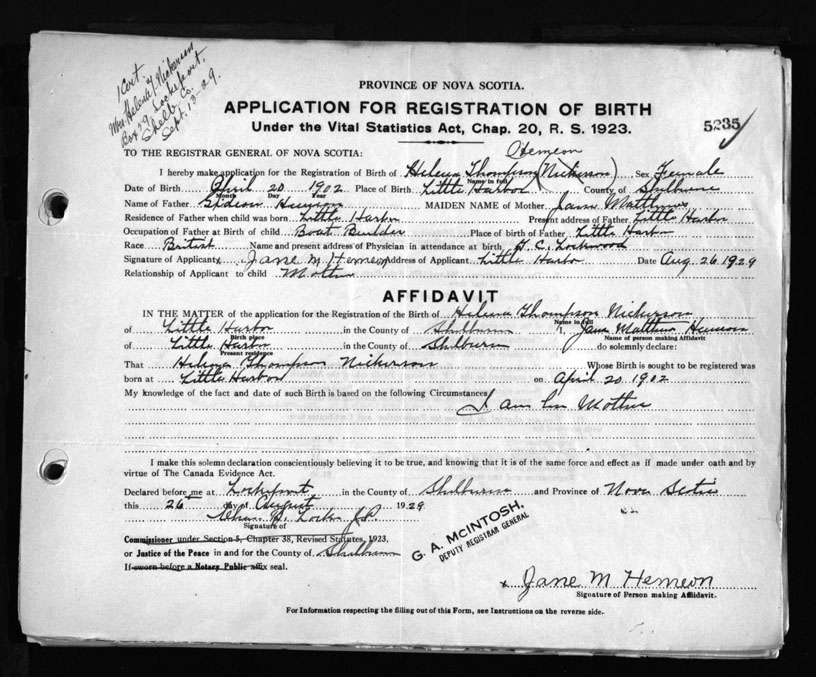 1 Cert.
Mrs Helena T. Nickerson
Box 19 Lockeport,
Shelb. Co.
Sept. 13-29.
PROVINCE OF NOVA SCOTIA.
APPLICATION FOR REGISTRATION OF BIRTH
Under the Vital Statistics Act, Chap. 20, R. S. 1923.
5235
TO THE REGISTRAR GENERAL OF NOVA SCOTIA:
Hemeon
I hereby make application for the Registration of Birth of Helena Thompson (Nickerson) Sex Female
Name in full
Date of Birth April 20 1902 Place of Birth Little Harbor County of Shelburne
Month Day Year
Name of Father Gideon Hemeon MAIDEN NAME of Mother Jane Matthews
Residence of Father when child was born Little Harbor Present address of Father Little Harbor
Occupation of Father at Birth of child Boat Builder Place of birth of Father Little Harbor
Race British Name and present address of Physician in attendance at birth H. C. Lockwood
Signature of Applicant x Jane M Hemeon Address of Applicant Little Harbor Date Aug 26 1929
Relationship of Applicant to child Mother
AFFIDAVIT
IN THE MATTER of the application for the Registration of the Birth of Helena Thompson Nickerson
Name in full
of Little Harbor in the County of Shelburne I, Jane Matthew Hemeon
Birth place Name of person making Affidavit
of Little Harbor in the County of Shelburne do solemnly declare:
Present residence
That Helena Thompson Nickerson Whose Birth is sought to be registered was
born at Little Harbor on April 20 1902
My knowledge of the fact and date of such Birth is based on the following Circumstances
I am her Mother
I make this solemn declaration conscientiously believing it to be true, and knowing that it is of the same force and effect as if made under oath and by
virtue of The Canada Evidence Act.
Declared before me at Lockeport in the County of Shelburne and Province of Nova Scotia
this 26 day of August 1929
Chas. B. Locke J.P.
Signature of
Commissioner under Section 5, Chapter 38, Revised Statutes, 1923,
or Justice of the Peace in and for the County of Shelburne
If sworn before a Notary Public affix seal.
G. A. McINTOSH,
DEPUTY REGISTRAR GENERAL
x Jane M Hemeon
Signature of Person making Affidavit.
For Information respecting the filling out of this Form, see Instructions on the reverse side.